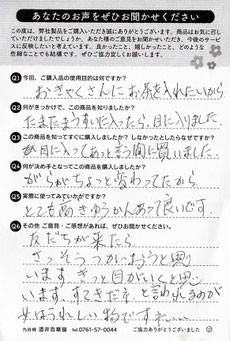 あなたのお声をぜひお聞かせください
この度は、弊社製品をご購入いただき誠にありがとうございます。商品はお気に召して
いただけましたでしょうか。あなた様のご意見をお聞かせいただき、今後のサービ
スに反映したいと考えています。良かったこと、嬉しかったこと、どのような
些細なことでも結構です。ぜひご協力宜しくお願いします。
Q1 今回、ご購入品の使用目的は何ですか?
おきゃくさんにお茶を入れたいから
Q2 何がきっかけで、この商品を知りましたか?
たまたまうすいに入ったら、目に入りました。
Q3 この商品を知ってすぐに購入しましたか? しなかったとしたらなぜですか?
目に入ってあっと言う間に買いました。
Q4 何が決め手となってこの商品を購入しましたか?
がらがちょっと変わってたから
Q5 実際に使ってみていかがですか?
とても高きゅうかんあって良いです。
Q6 その他 ご意見・ご感想があれば、ぜひお聞かせください。
友だちが来たら
さっそうつかおうと思
います きっと目がいくと思
います。すてきだネ と言われるのが
女はうれしい物ですネ
九谷焼 酒井百華園 tel.0761-57-0044 ご協力ありがとうございました